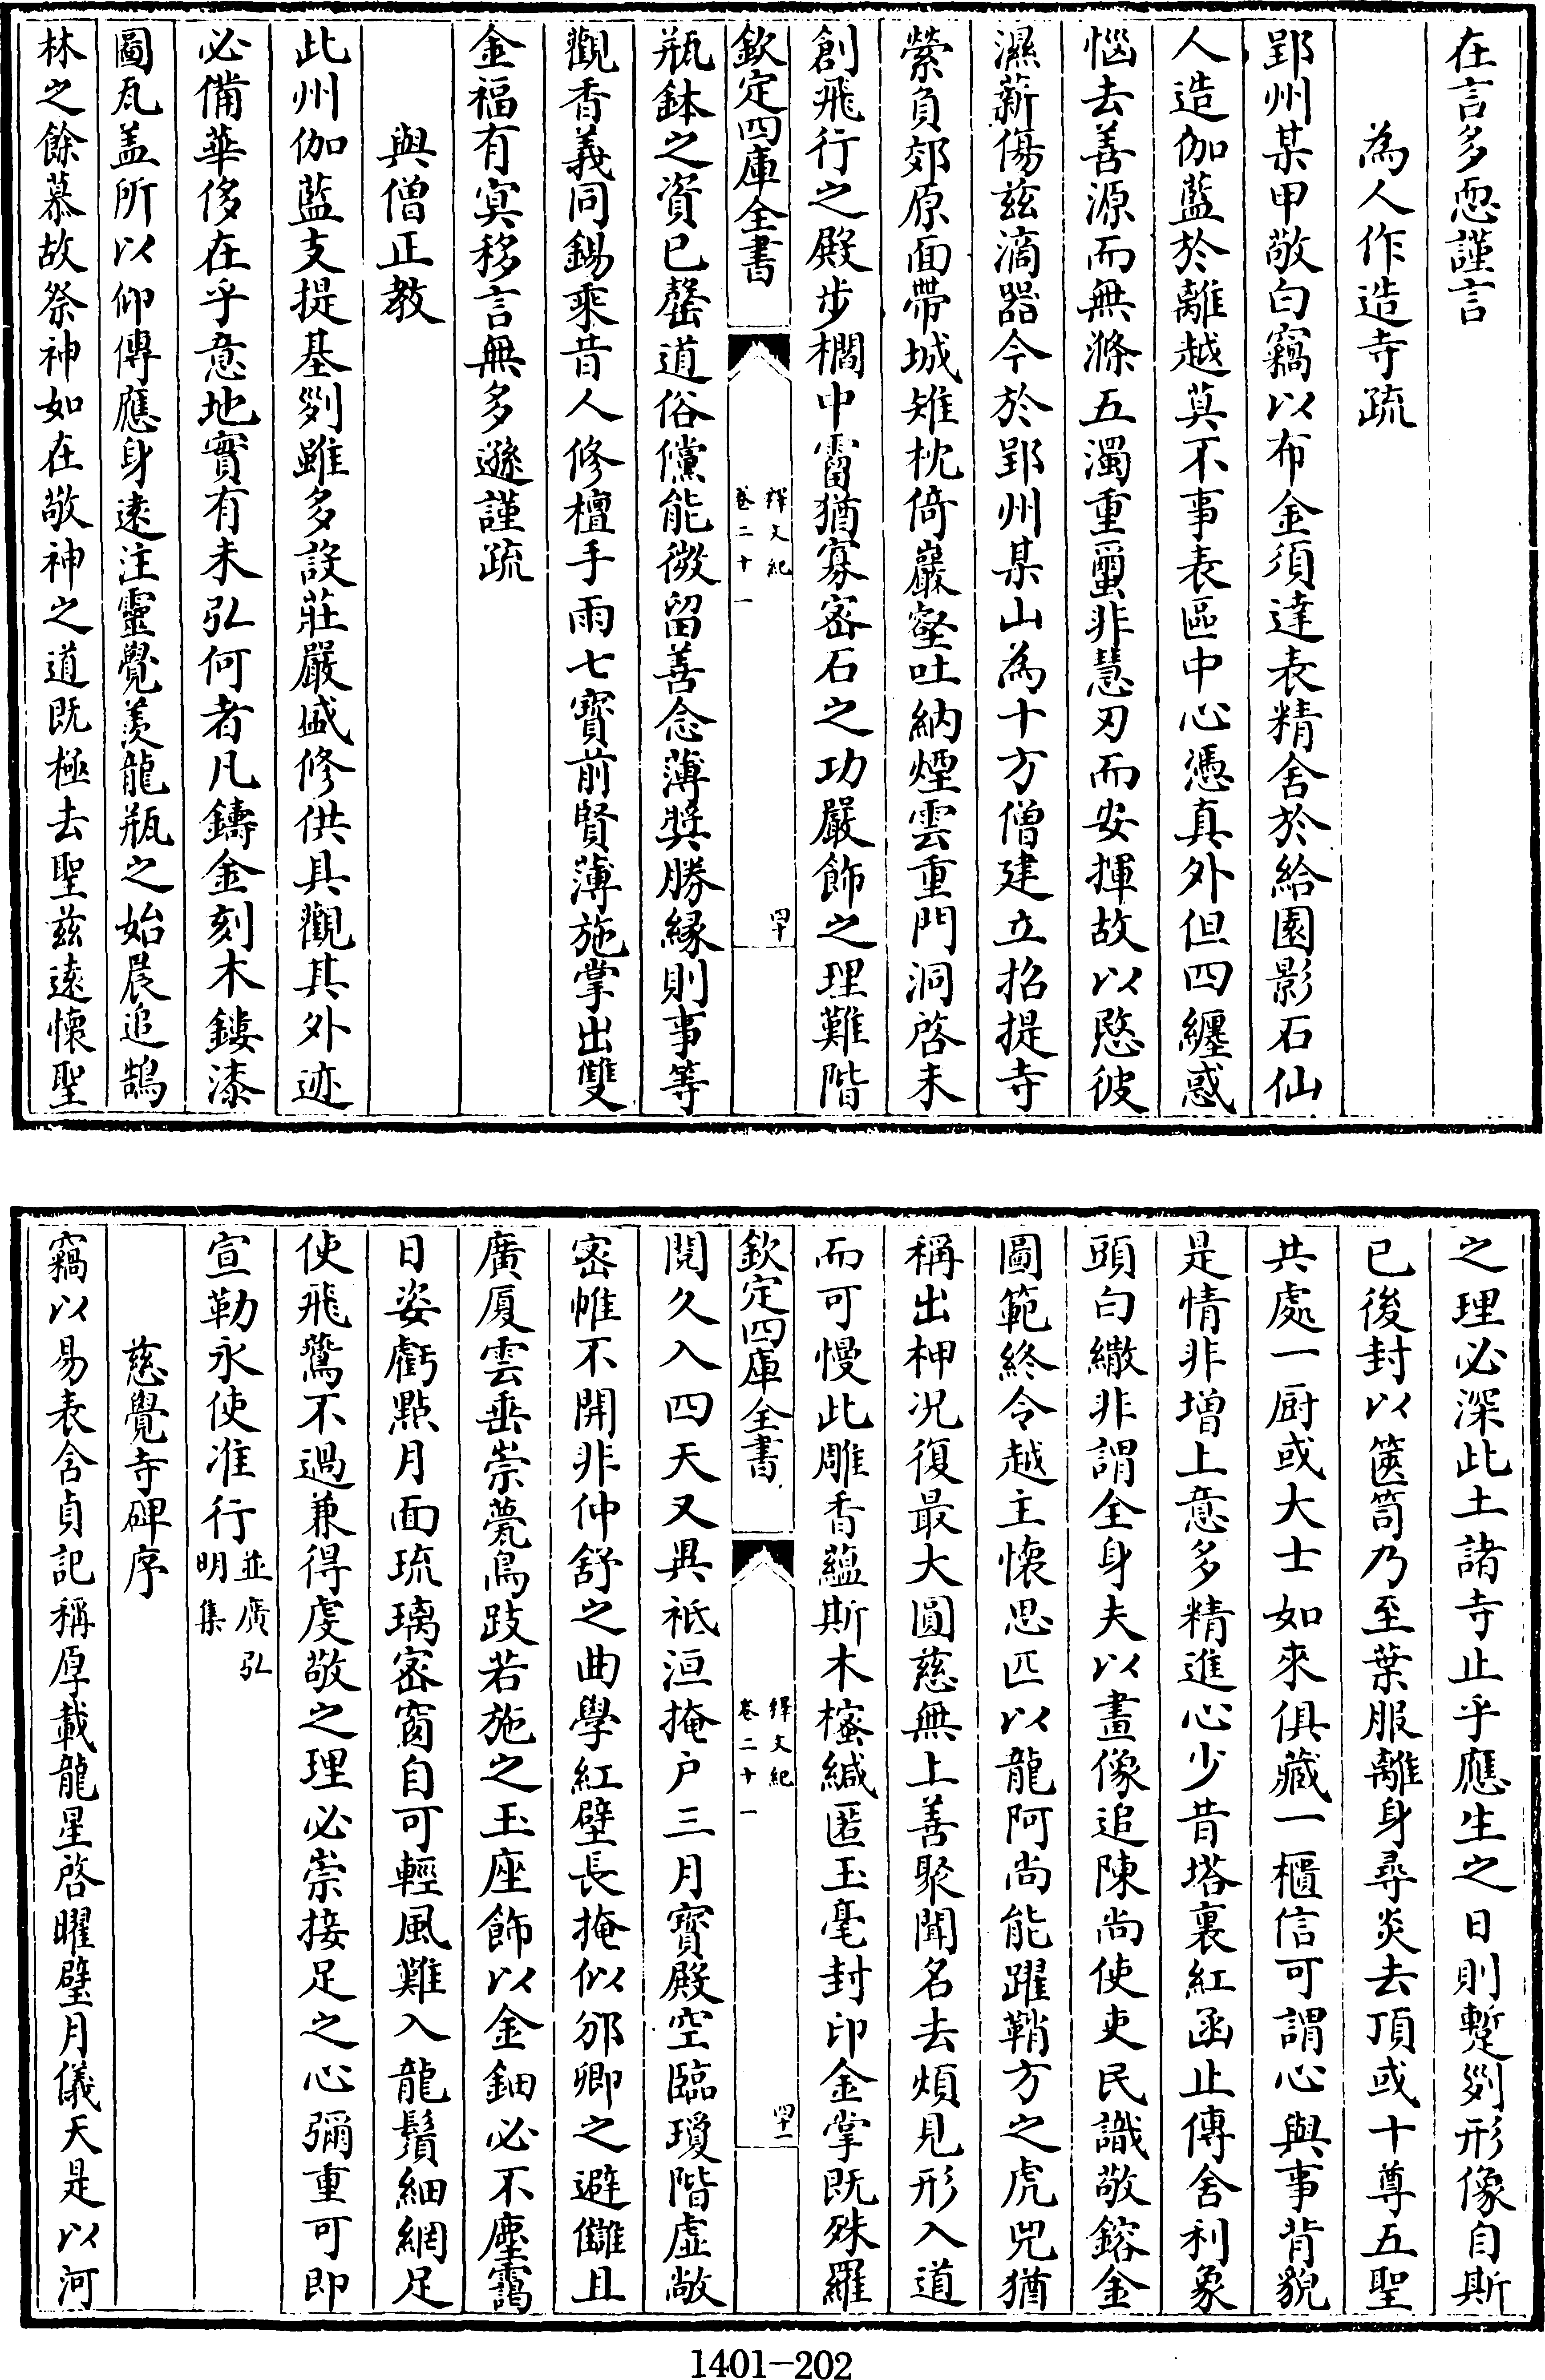 在言多恧謹言
為人作造寺疏
郢州某甲敬白竊以布金須達表精舍於給園影石仙
人造伽藍於離越莫不事表區中心憑真外但四纏惑
惱去善源而無滌五濁重壘非慧刃而安揮故以愍彼
濕薪傷茲滴器今於郢州某山為十方僧建立招提寺
縈負郊原面帶城雉枕倚巖壑吐納煙雲重門洞啓未
創飛行之殿步櫩中霤猶寡密石之功嚴飾之理難階
欽定四庫全書
釋文紀
卷二十一
四十
瓶鉢之資已罄道俗儻能微留善念薄獎勝縁則事等
觀香義同錫乘昔人修檀手雨七寳前賢薄施掌出雙
金福有冥移言無多遜謹疏
與僧正教
此州伽藍支提基列雖多設莊嚴盛修供具觀其外迹
必備華侈在乎意地實有未弘何者凡鑄金刻木鏤漆
圖瓦盖所以仰傳應身遠注靈覺羨龍瓶之始晨追鵠
林之餘慕故祭神如在敬神之道既極去聖兹遠懷聖
之理必深此土諸寺止乎應生之日則蹔列形像自斯
已後封以篋笥乃至葉服離身尋炎去頂或十尊五聖
共處一厨或大士如來俱藏一櫃信可謂心與事背貌
是情非增上意多精進心少昔塔裏紅函止傳舍利象
頭白繖非謂全身夫以畫像追陳尚使吏民識敬鎔金
圖範終令越主懷思匹以龍阿尚能躍鞘方之虎兕猶
稱出柙况復最大圓慈無上善聚聞名去煩見形入道
而可慢此雕香蘊斯木櫁緘匿玉毫封印金掌既殊羅
欽定四庫全書
釋文紀
卷二十一
四十一
閱久入四天又異祇洹掩户三月寳殿空臨瓊階虚敞
密帷不開非仲舒之曲學紅壁長掩似邠卿之避讎且
廣厦雲垂崇甍鳥跂若施之玉座飾以金鈿必不塵靄
日姿虧點月面琉璃密窗自可輕風難入龍鬚細網足
使飛鶯不過兼得虔敬之理必崇接足之心彌重可即
宣勒永使准行並廣弘
明集
慈覺寺碑序
竊以易表含貞記稱厚載龍星啓曜璧月儀天是以河
1401-202